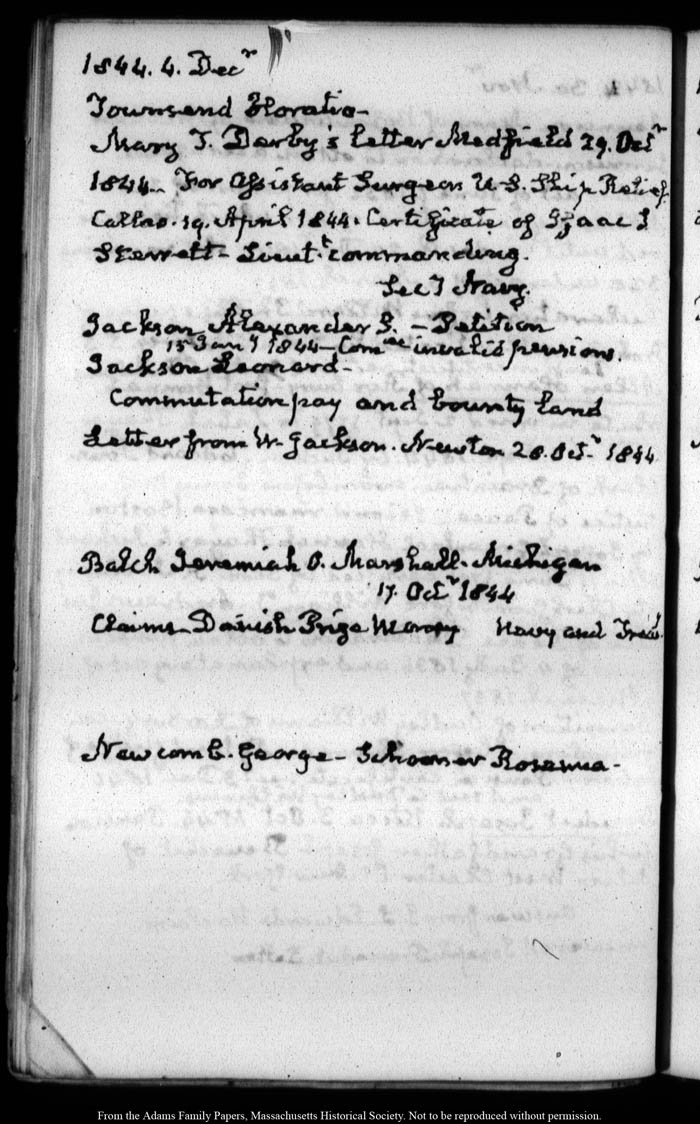 1844. 4. Decr
Townsend Horatio–
Mary T. Derby's letter Medfield 29. Octr
1844– For Assistant Surgeon U.S. Ship Relief
Callao. 19. April 1844. Certificate of Isaac S
Sterrett– Lieut.t commanding.
Secy Navy.
Jackson Alexander S. – Petition
15 Jany 1844– Comee invalid pensions.
Jackson Leonard–
Commutation pay and bounty land
Letter from W. Jackson. Newton 28. Octr 1844
Balch Jeremiah O. Marshall. Michigan
17. Octr 1844
Claims– Danish Prize Money Navy and Treasy
Newcomb. George– Schooner
From the Adams Family Papers, Massachusetts Historical Society. Not to be reproduced without permission.